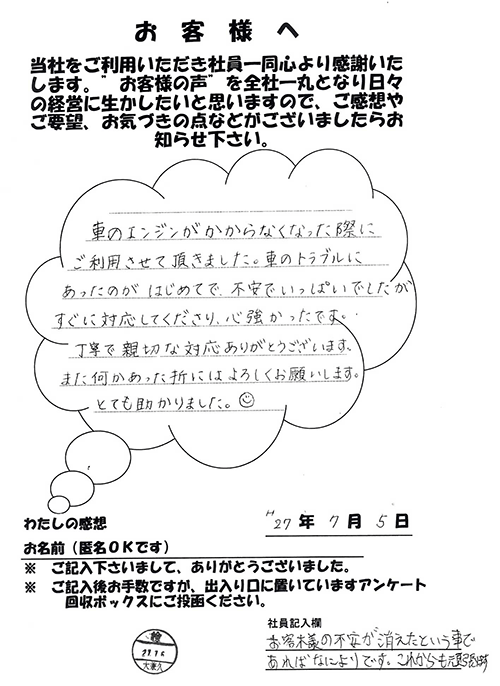 お客様へ
当社をご利用いただき社員一同心より感謝いた
します。"お客様の声"を全社一丸となり日々
の経営に生かしたいと思いますので、ご感想や
ご要望、お気づきの点などがございましたらお
知らせ下さい。
車のエンジンがかからなくなった際に
ご利用させて頂きました。車のトラブルに
あったのが はじめてで、不安でいっぱいでしたが
すぐに対応してくださり、心強かったです。
丁寧で親切な対応ありがとうございます。
また何かあった折にはよろしくお願いします。
とても助かりました。☺
わたしの感想
H27年 7月 5日
お名前（匿名OKです）
※ ご記入下さいまして、ありがとうございました。
※ ご記入後お手数ですが、出入り口に置いていますアンケート
回収ボックスにご投函ください。
社員記入欄
お客様の不安が消えたという事で
あればなによりです。これからも頑張ります
検
27.7.6